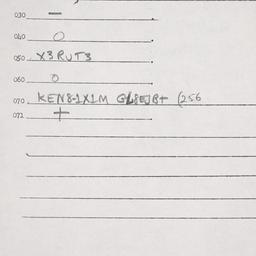 030 —
040 O
050 X3RUT3
060 O
070 KEN8-1X1M GL8EJ8+ (256
072 +